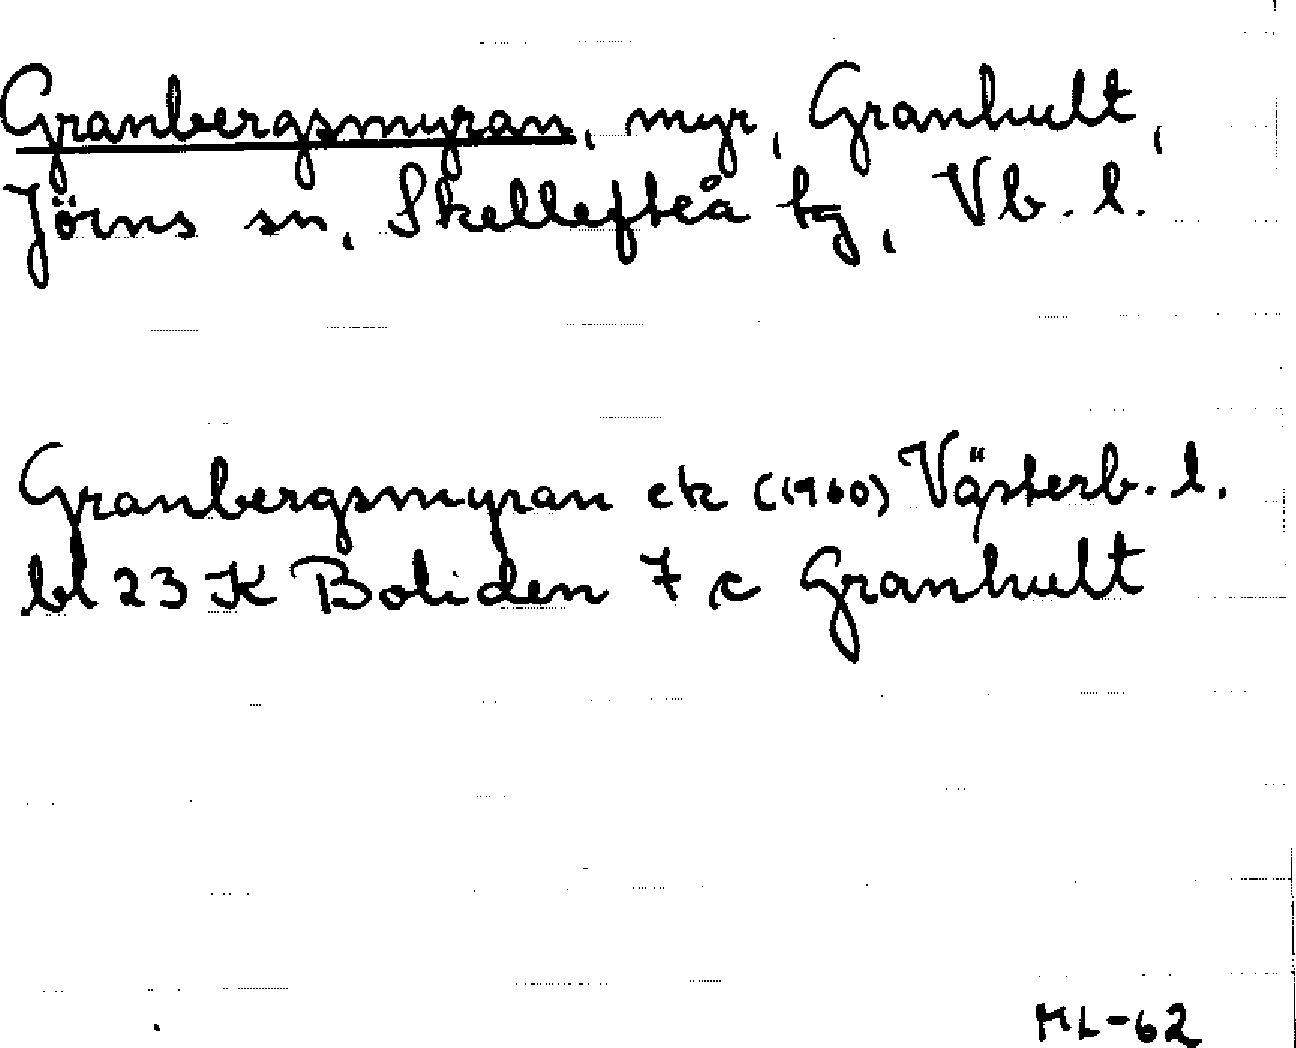 Granbergsmyran, myr, Granhult,
Jörns sn, Skellefteå tg, Vb. l.
Granbergsmyran ek (1960) Västerb. l.
bl 23 K Boliden 7 c Granhult
ML-62